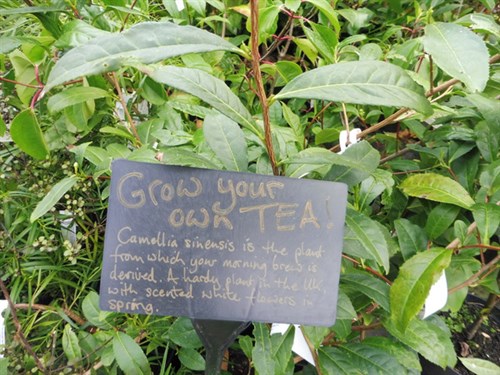 Grow your
own TEA!
Camellia sinensis is the plant
from which your morning brew is
derived. A hardy plant in the UK
with scented white flowers in
spring.